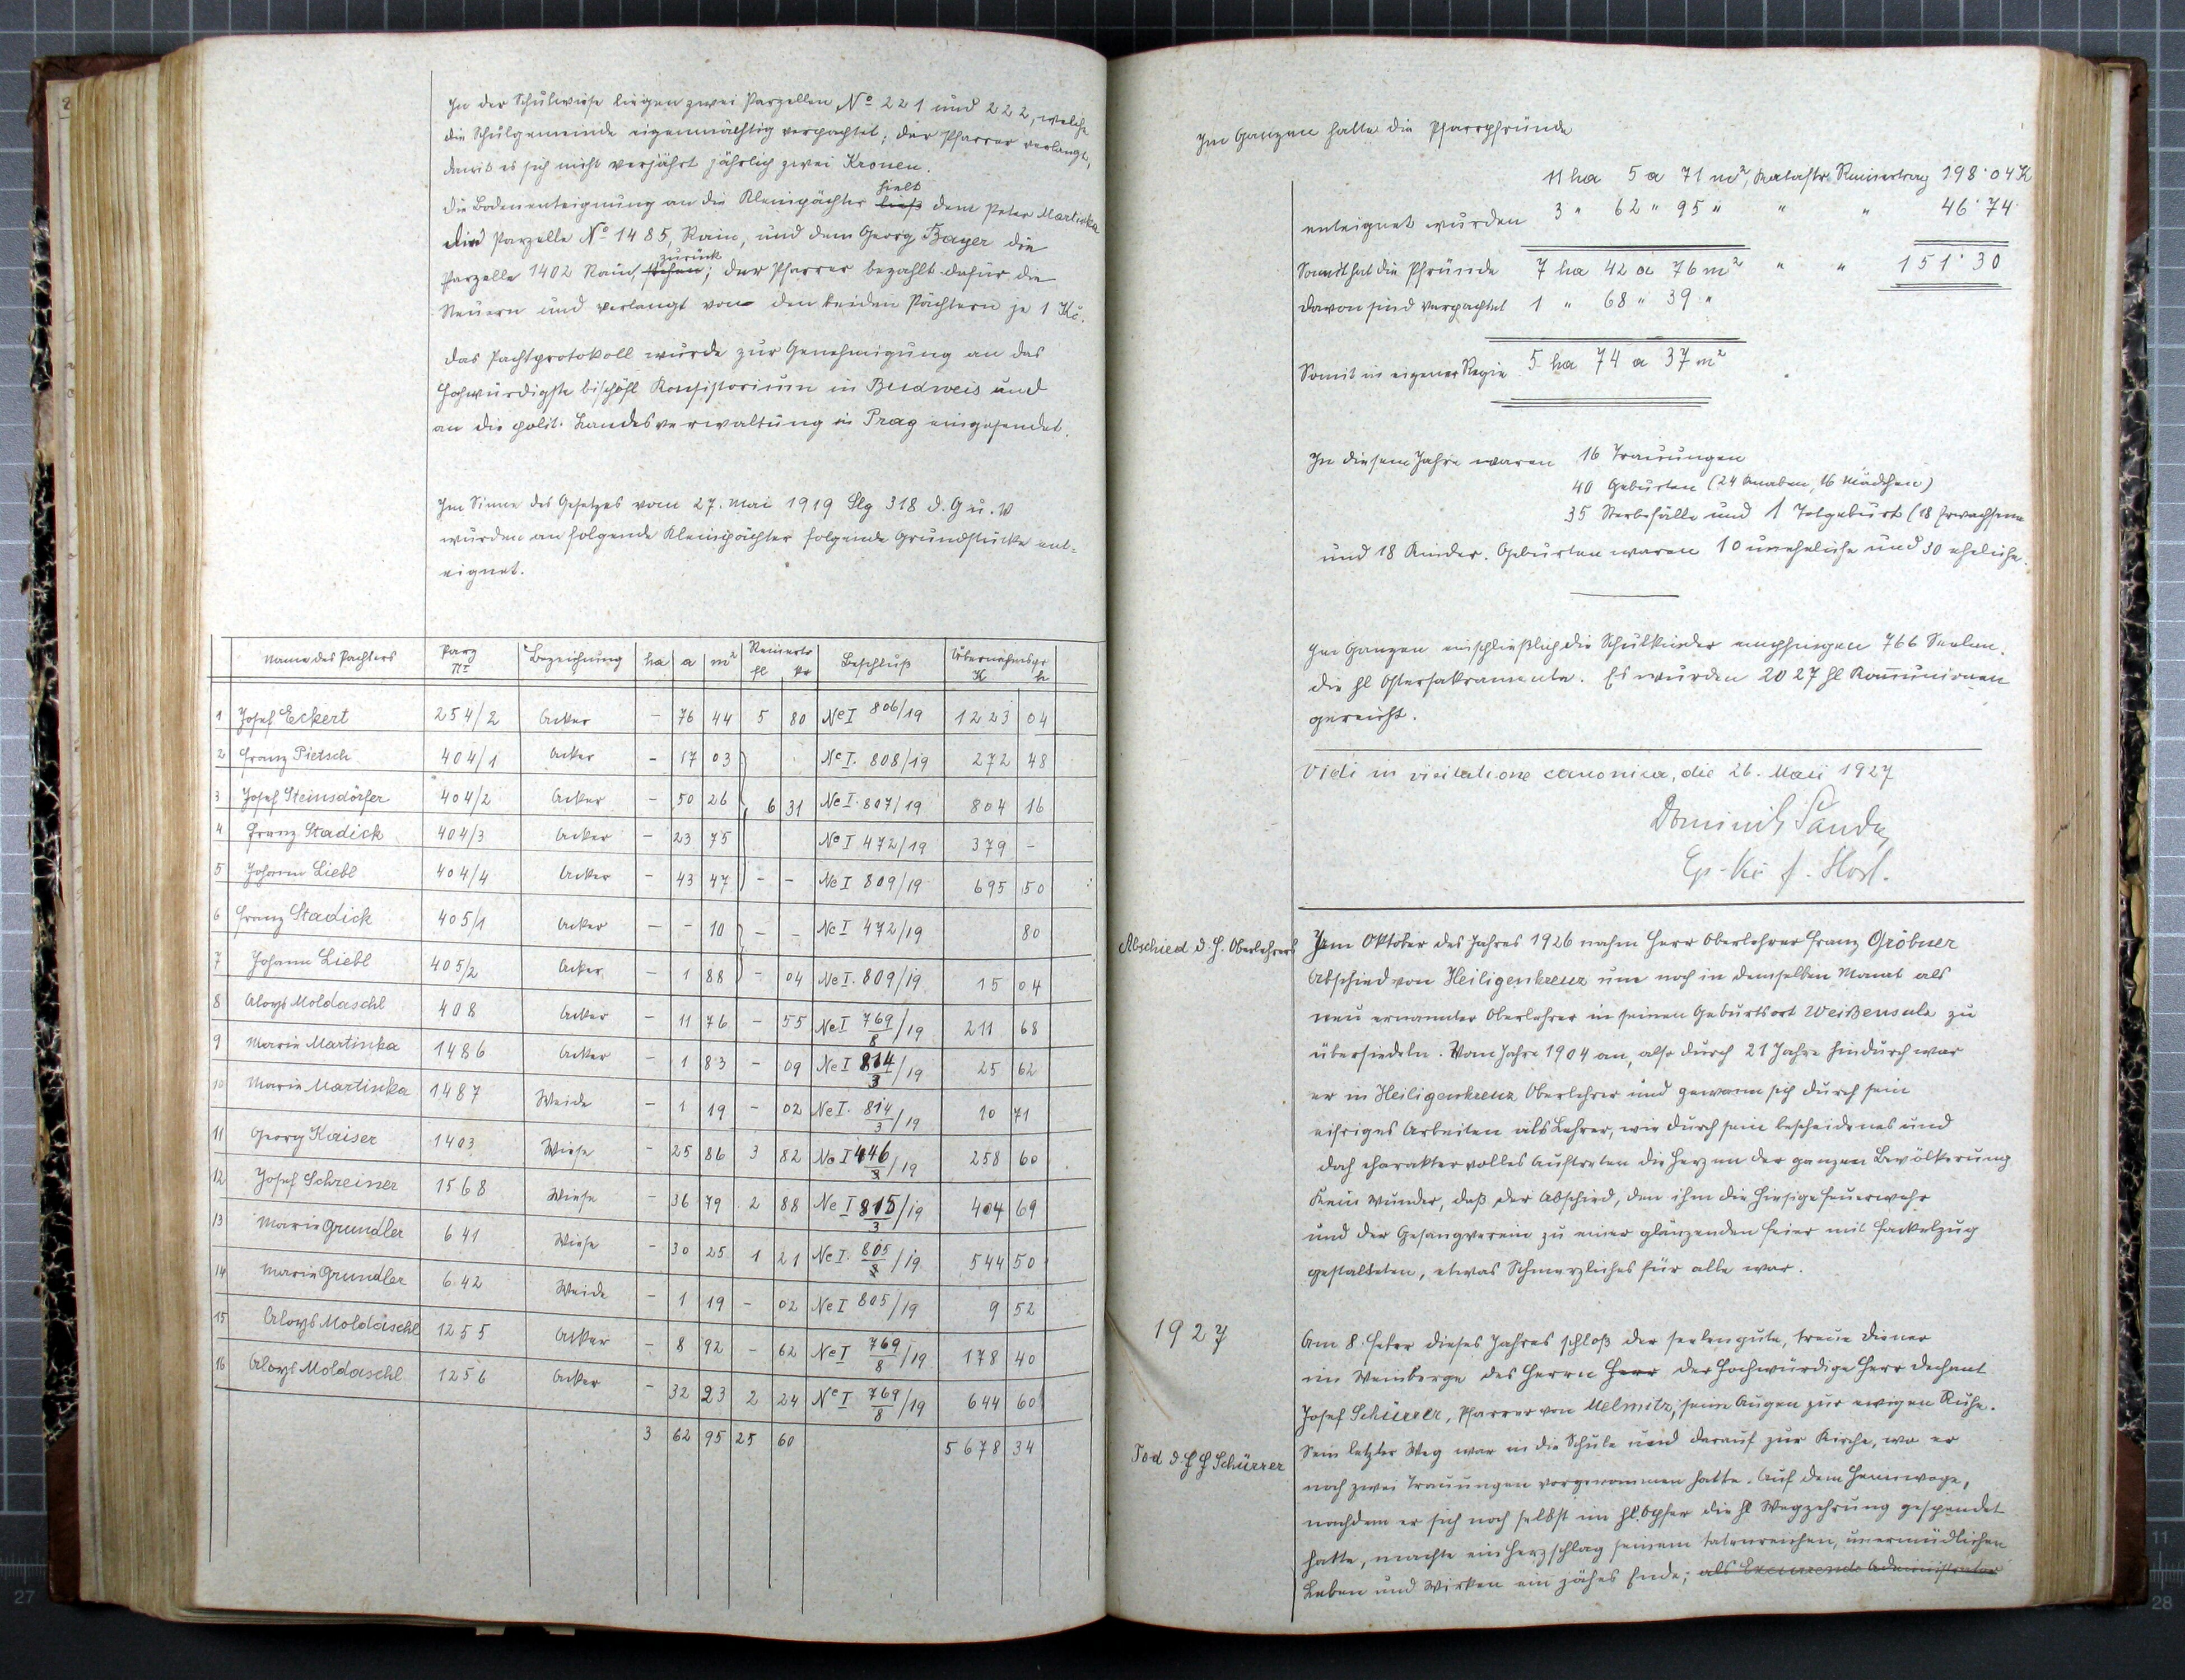 In der Schulwiese liegen zwei Parzellen, No 221 und 222, welche
die Schulgemeinde eigenmächtig verpachtet; der Pfarrer verlangt,
damit es sich nicht verjährt jährlich zwei Kronen.
hielt
Die Bodenenteignung an die Kleinpächter ließ dem Peter Martinka
die Parzelle No 1485, Rain, und dem Georg Bayer die
zurück
Parzelle 1402 Rain, ; der Pfarrer bezahlt dafür die
Steuern und verlangt von den beiden Pächtern je 1 Kč.
Das Pachtprotokoll wurde zur Genehmigung an das
Hochwürdigste bischöfl Konsistorium in Budweis und
an die polit. Landesverwaltung in Prag eingesendet.
Im Sinne des Gesetzes vom 27. Mai 1919 Slg 318 d. G u. V
wurden an folgende Kleinpächter folgende Grundstücke ent=
eignet.
Name des Pächters Parz Nr Bezeichnung ha a m2 Reinertr fl kr Beschluß Übernahmspr K h
1 Josef Eckert 254/2 Acker - 76 44 5 80 Nc I 806/19 1223 04
2 Franz Pietsch 404/1 Acker - 17 03 Nc I. 808/19 272 48
3 Josef Steinsdörfer 404/2 Acker - 50 26 6 31 Nc I. 807/19 804 16
4 Franz Stadick 404/3 Acker - 23 75 Nc I 472/19 379 -
5 Johann Liebl 404/4 Acker - 43 47 - - Nc I 809/19 695 50
6 Franz Stadick 405/1 Acker - - 10 - - Nc I 472/19 80
7 Johann Liebl 405/2 Acker - 1 88 - 04 Nc I. 809/19 15 04
8 Aloys Moldaschl 408 Acker - 11 76 - 55 Nc I 769/8/19 211 68
9 Marie Martinka 1486 Acker - 1 83 - 09 Nc I 814/3/19 25 62
10 Marie Martinka 1487 Weide - 1 19 - 02 Nc I. 814/3/19 10 71
11 Georg Kaiser 1403 Wiese - 25 86 3 82 Nc I 446/19 258 60
12 Josef Schreiner 1568 Wiese - 36 79 2 88 Nc I 815/3/19 404 69
13 Marie Grundler 641 Wiese - 30 25 1 21 Nc I. 805/19 544 50
14 Marie Grundler 642 Weide - 1 19 - 02 Nc I 805/19 9 52
15 Aloys Moldaschl 1255 Acker - 8 92 - 62 Nc I 769/8/19 178 40
16 Aloys Moldaschl 1256 Acker - 32 23 2 24 Nc I 769/8/19 644 60
3 62 95 25 60 5678 34
Im Ganzen hatte die Pfarrpfründe
11 ha 5 a 71 m2, Katastr. Reinertrag 198·04 K
enteignet wurden 3 " 62 " 95 " " " 46·74
Somit hat die Pfründe 7 ha 42 a 76 m2 " " 151·30
Davon sind verpachtet 1 " 68 " 39 "
Somit in eigener Regie 5 ha 74 a 37 m2
In diesem Jahre waren 16 Trauungen
40 Geburten (24 Knaben, 16 Mädchen)
35 Sterbefälle und 1 Totgeburt (18 Erwachsene
und 18 Kinder. Geburten waren 10 uneheliche und 30 eheliche.
Im Ganzen einschließlich die Schulkinder empfingen 766 Seelen.
die hl Ostersakramente. Es wurden 2027 hl Kommunionen
gereicht.
Vidi in visitatione canonica, die 26. Maii 1927
Abschied d. H. Oberlehrers
Im Oktober des Jahres 1926 nahm Herr Oberlehrer Franz Gröbner
Abschied von Heiligenkreuz um noch in demselben Monat als
neu ernannter Oberlehrer in seinen Geburtsort Weißensula zu
übersiedeln. Vom Jahre 1904 an, also durch 21 Jahre hindurch war
er in Heiligenkreuz Oberlehrer und gewann sich durch sein
eifriges Arbeiten als Lehrer, wie durch sein bescheidenes und
doch charaktervolles Auftreten die Herzen der ganzen Bevölkerung
Kein Wunder, daß der Abschied, den ihm die hiesige Feuerwehr
und der Gesangverein zu einer glänzenden Feier mit Fackelzug
gestalteten, etwas Schmerzliches für alle war.
1927
Am 8. Feber dieses Jahres schloß der seelengute, treue Diener
im Weinberge des Herrn Herr der hochwürdige Herr Dechant
Josef Schürrer, Pfarrer von Melmitz, seine Augen zur ewigen Ruhe.
Tod d H H Schürrer
Sein letzter Weg war in die Schule und darauf zur Kirche, wo er
noch zwei Trauungen vorgenommen hatte. Auf dem Heimwege,
nachdem er sich noch selbst im hl. Opfer die hl Wegzehrung gespendet
hatte, machte ein Herzschlag seinem tatenreichen, unermüdlichen
Leben und Wirken ein jähes Ende; als Excurrendo Administrator